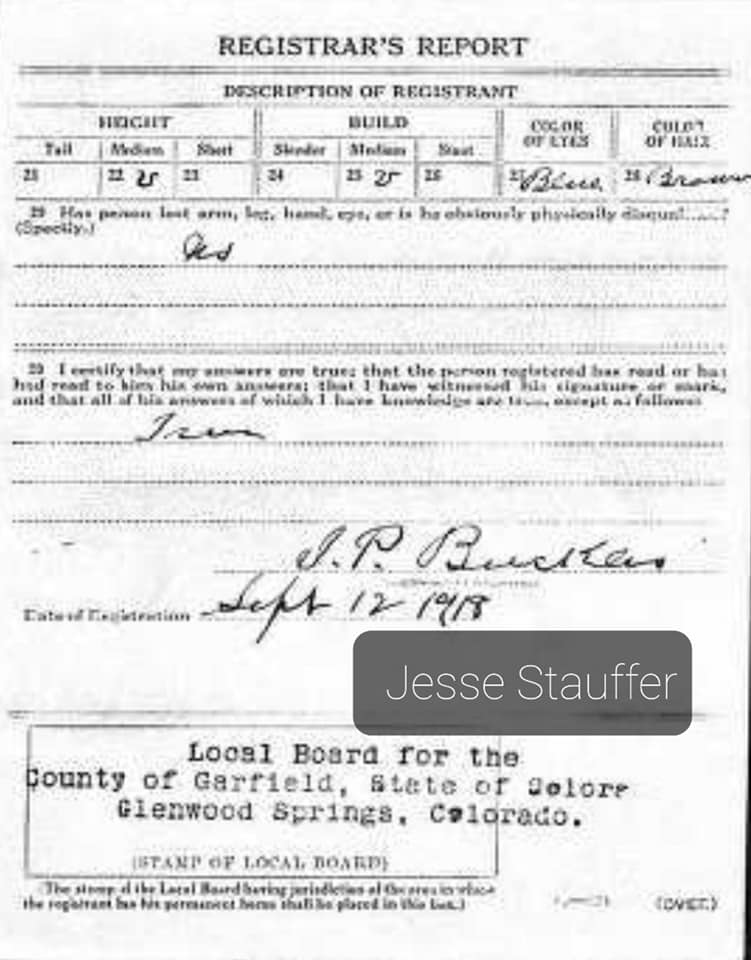 REGISTRAR'S REPORT
DESCRIPTION OF REGISTRANT
HEIGHT BUILD COLOR OF EYES COLOR OF HAIR
Tall Medium Short Slender Medium Stout
21 22 v 23 24 25 v 26 27 Blue 28 Brown
29 Has person lost arm, leg, hand, eye, or is he obviously physically
(Specify.)
30 I certify that my answers are true; that the person registered has read or has
had read to him his own answers; that I have witnessed his signature or mark,
and that all of his answers of which I have knowledge are true, except as follows:
J. P.
Date of Registration Sept 12 1918
Jesse Stauffer
Local Board for the
County of Garfield, State of
Glenwood Springs, Colorado.
(STAMP OF LOCAL BOARD)
(The stamp of the Local Board having jurisdiction of the area in which
the registrant has his permanent home shall be placed in this box.)
(OVER)